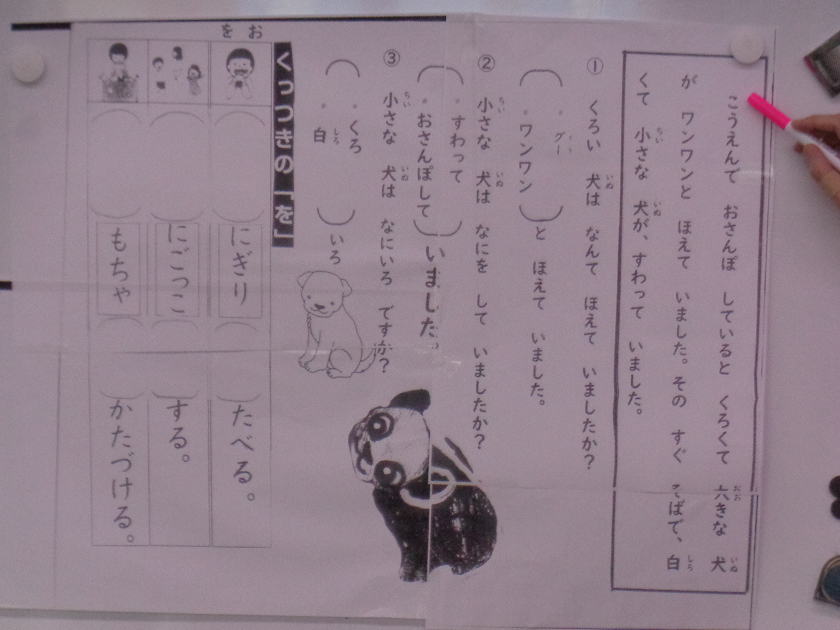 こうえんで おさんぽ していると くろくて 大きな 犬
が ワンワンと ほえて いました。その すぐ そばで、白
くて 小さな 犬が、すわって いました。
① くろい 犬は なんて ほえて いましたか?
グー
ワンワン
と ほえて いました。
② 小さな 犬は なにを して いましたか?
すわって
おさんぽして
いました。
③ 小さな 犬は なにいろ ですか?
くろ
白
いろ
くっつきの「を」
お
を
にぎり たべる。
にごっこ する。
もちゃ かたづける。